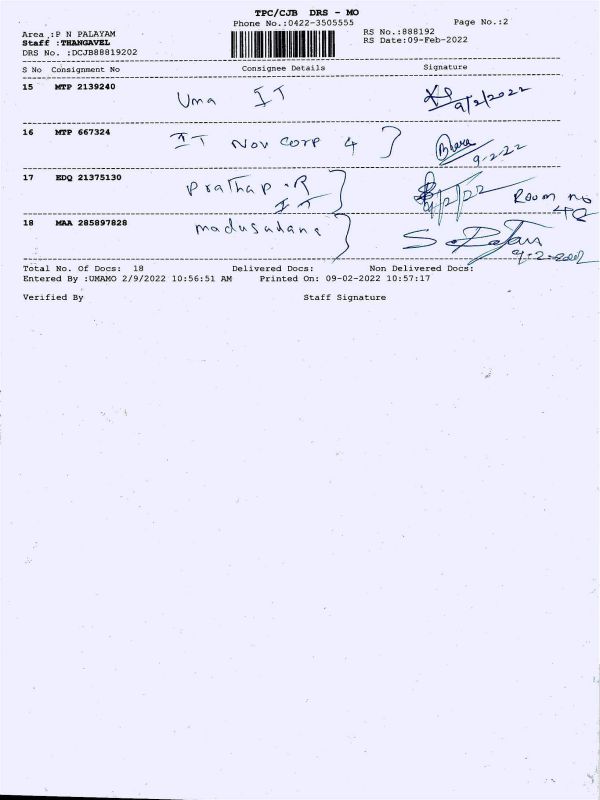 TPC/CJB DRS - MO
Phone No.:0422-3505555
Page No.:2
Area :P N PALAYAM
RS No.:888192
Staff :THANGAVEL
RS Date:09-Feb-2022
DRS No. :DCJB88819202
S No Consignment No Consignee Details Signature
15 MTP 2139240 Uma IT 9/2/2022
16 MTP 667324 IT Nov Corp 4 9-2-22
17 EDQ 21375130 Prathap.R 9/2/22 Room no
IT
18 MAA 285897828 madusadana
9-2-2022
Total No. Of Docs: 18 Delivered Docs: Non Delivered Docs:
Entered By :UMAMO 2/9/2022 10:56:51 AM Printed On: 09-02-2022 10:57:17
Verified By Staff Signature